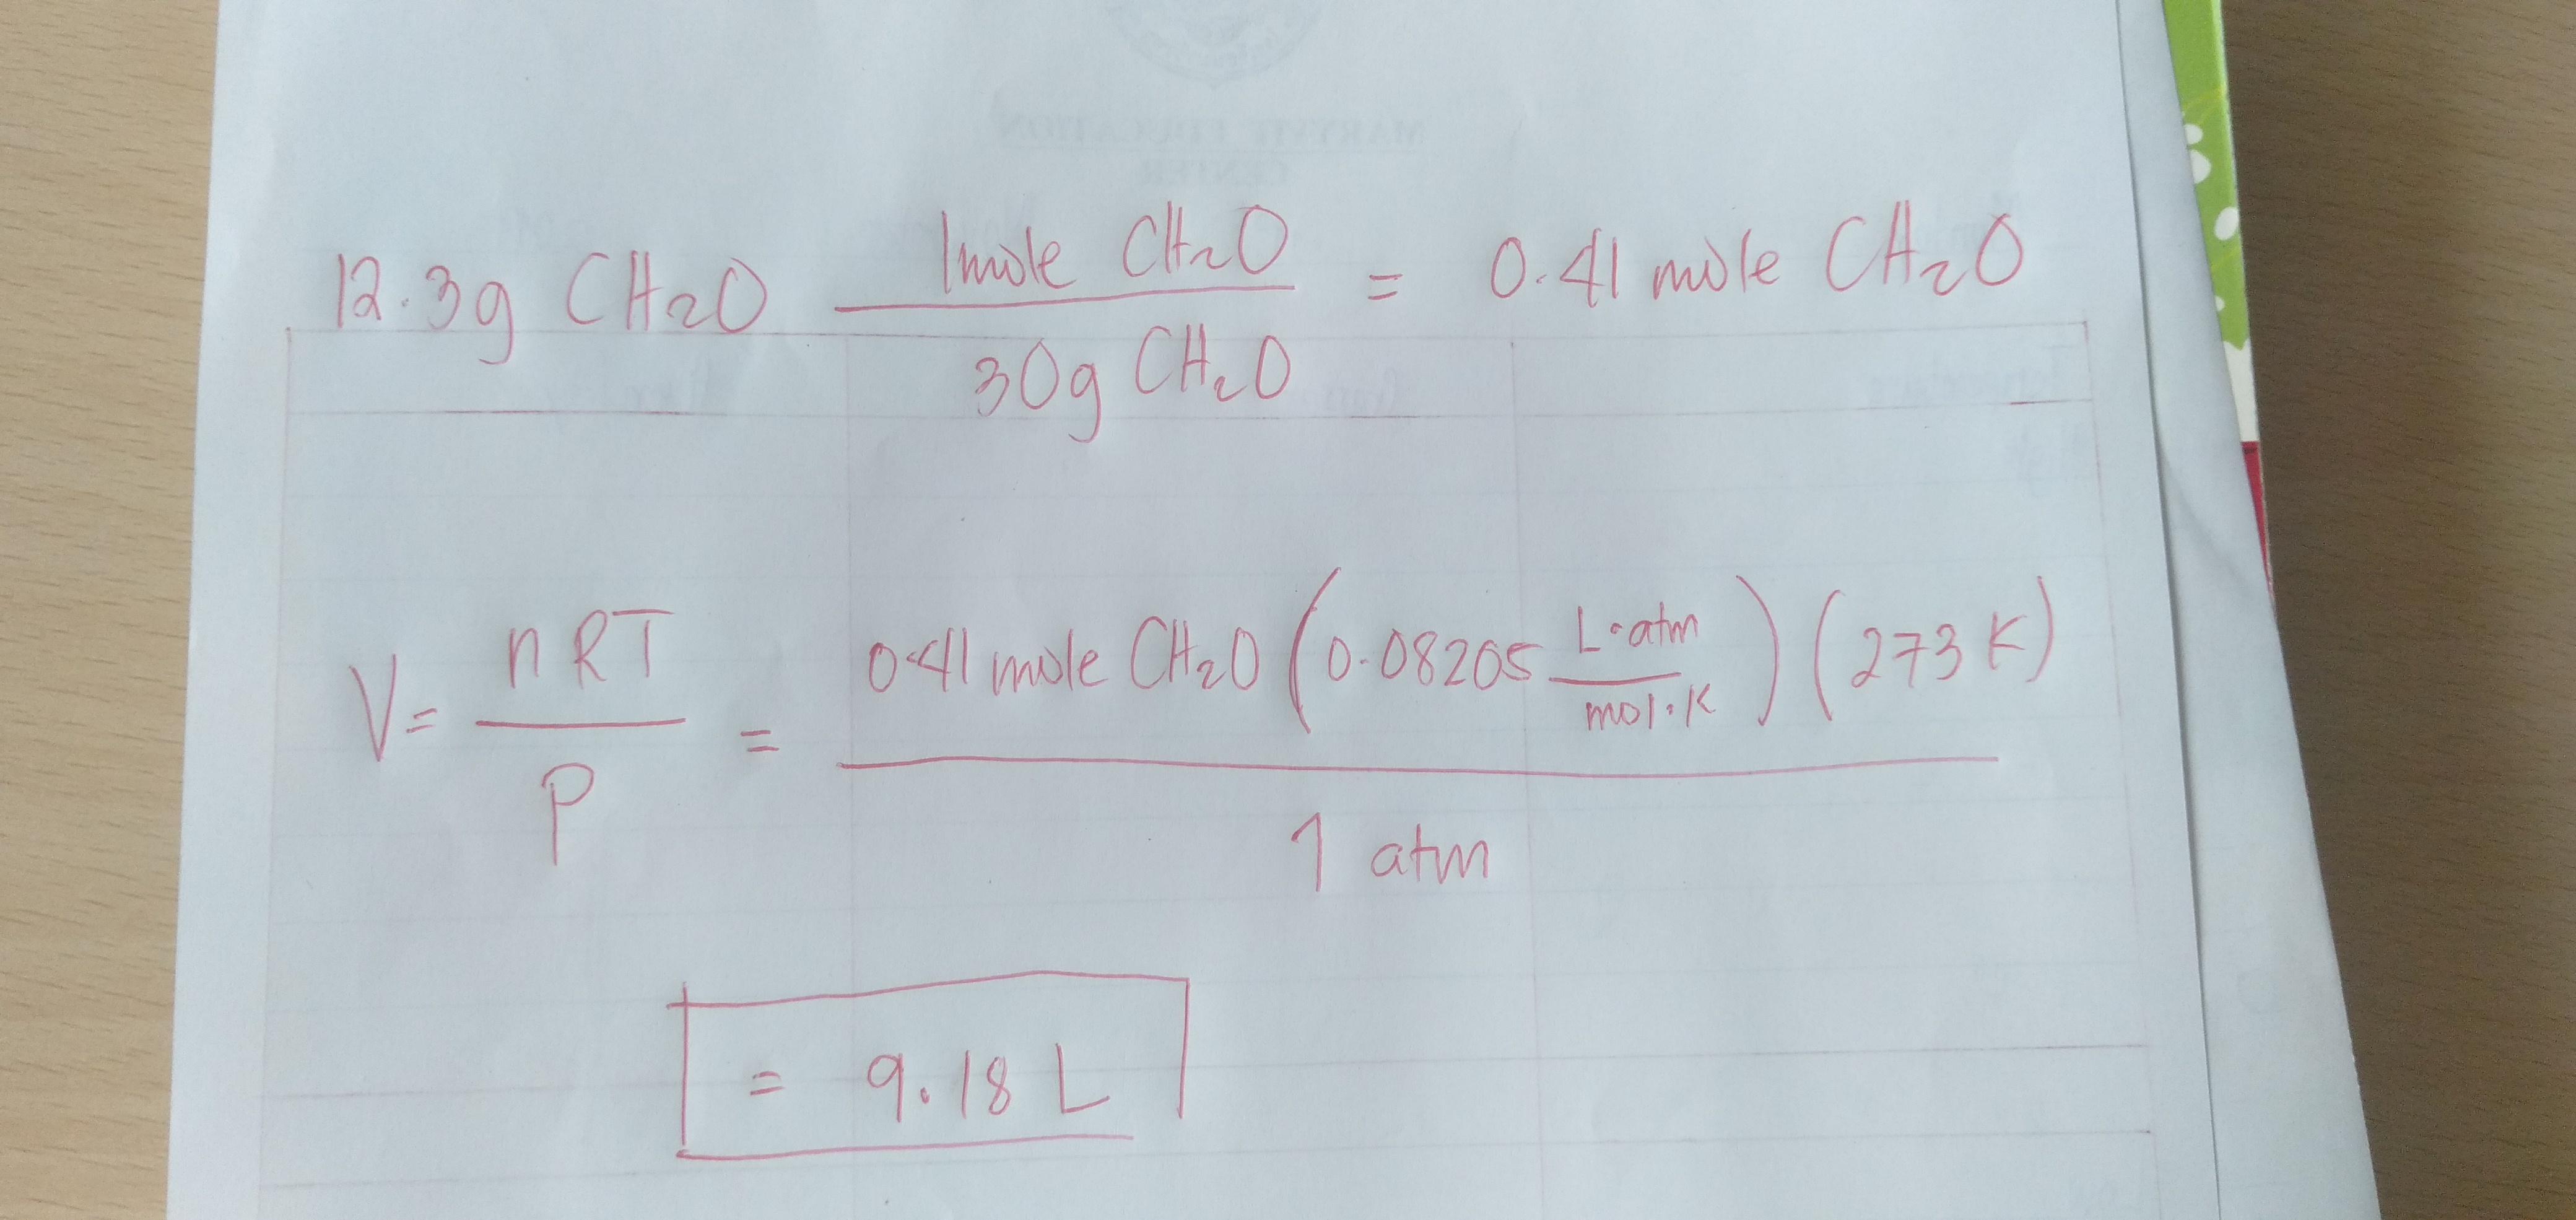 12.3g CH₂O 1 mole CH₂O / 30g CH₂O = 0.41 mole CH₂O
V = nRT / P = 0.41 mole CH₂O (0.08205 L·atm / mol·K) (273 K) / 1 atm
= 9.18 L